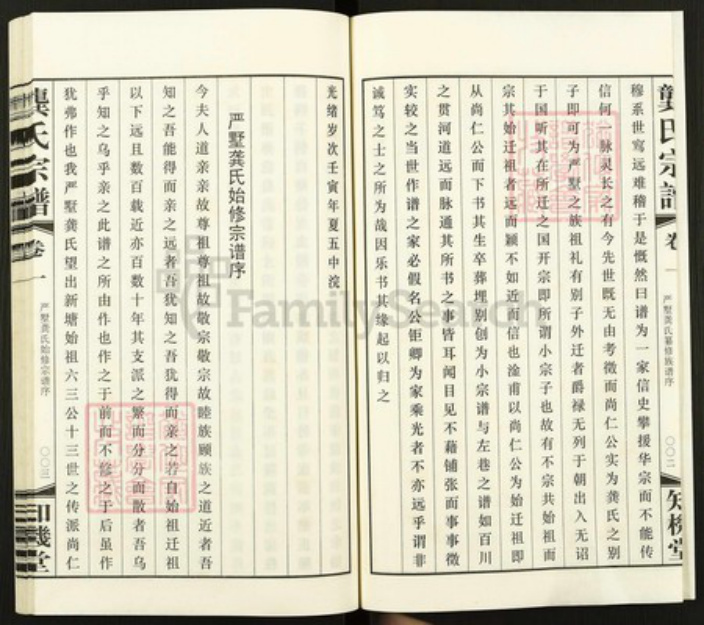 龚氏宗谱
卷一
严墅龚氏纂修族谱序
〇〇二
知機堂
穆系世寫远难稽于是慨然曰谱为一家信史攀援华宗而不能传
信何一脉灵长之有今先世既无由考徵而尚仁公实为龚氏之别
子即可为严墅之族祖礼有别子外迁者爵禄无列于朝出入无诏
于国听其在所迁之国开宗即所谓小宗子也故有不宗共始祖而
宗其始迁祖者远而颖不如近而信也淦甫以尚仁公为始迁祖即
从尚仁公而下书其生卒葬埋别创为小宗谱与左巷之谱如百川
之贯河道远而脉通其所书之事皆耳闻目见不藉铺张而事事徵
实较之当世作谱之家必假名公钜卿为家乘光者不亦远乎谓非
诚笃之士之所为哉因乐书其缘起以归之
光绪岁次壬寅年夏五中浣
严墅龚氏始修宗谱序
今夫人道亲亲故尊祖尊祖故敬宗敬宗故睦族顾族之道近者吾
知之吾能得而亲之远者吾犹知之吾犹得而亲之若自始祖迁祖
以下远且数百载近亦百数十年其支派之繁而分分而散者吾乌
乎知之乌乎亲之此谱之所由作也作之于前而不修之于后虽作
犹弗作也我严墅龚氏望出新塘始祖六三公十三世之传派尚仁
龚氏宗谱
卷一
严墅龚氏始修宗谱序
〇〇三
知機堂
FamilySearch